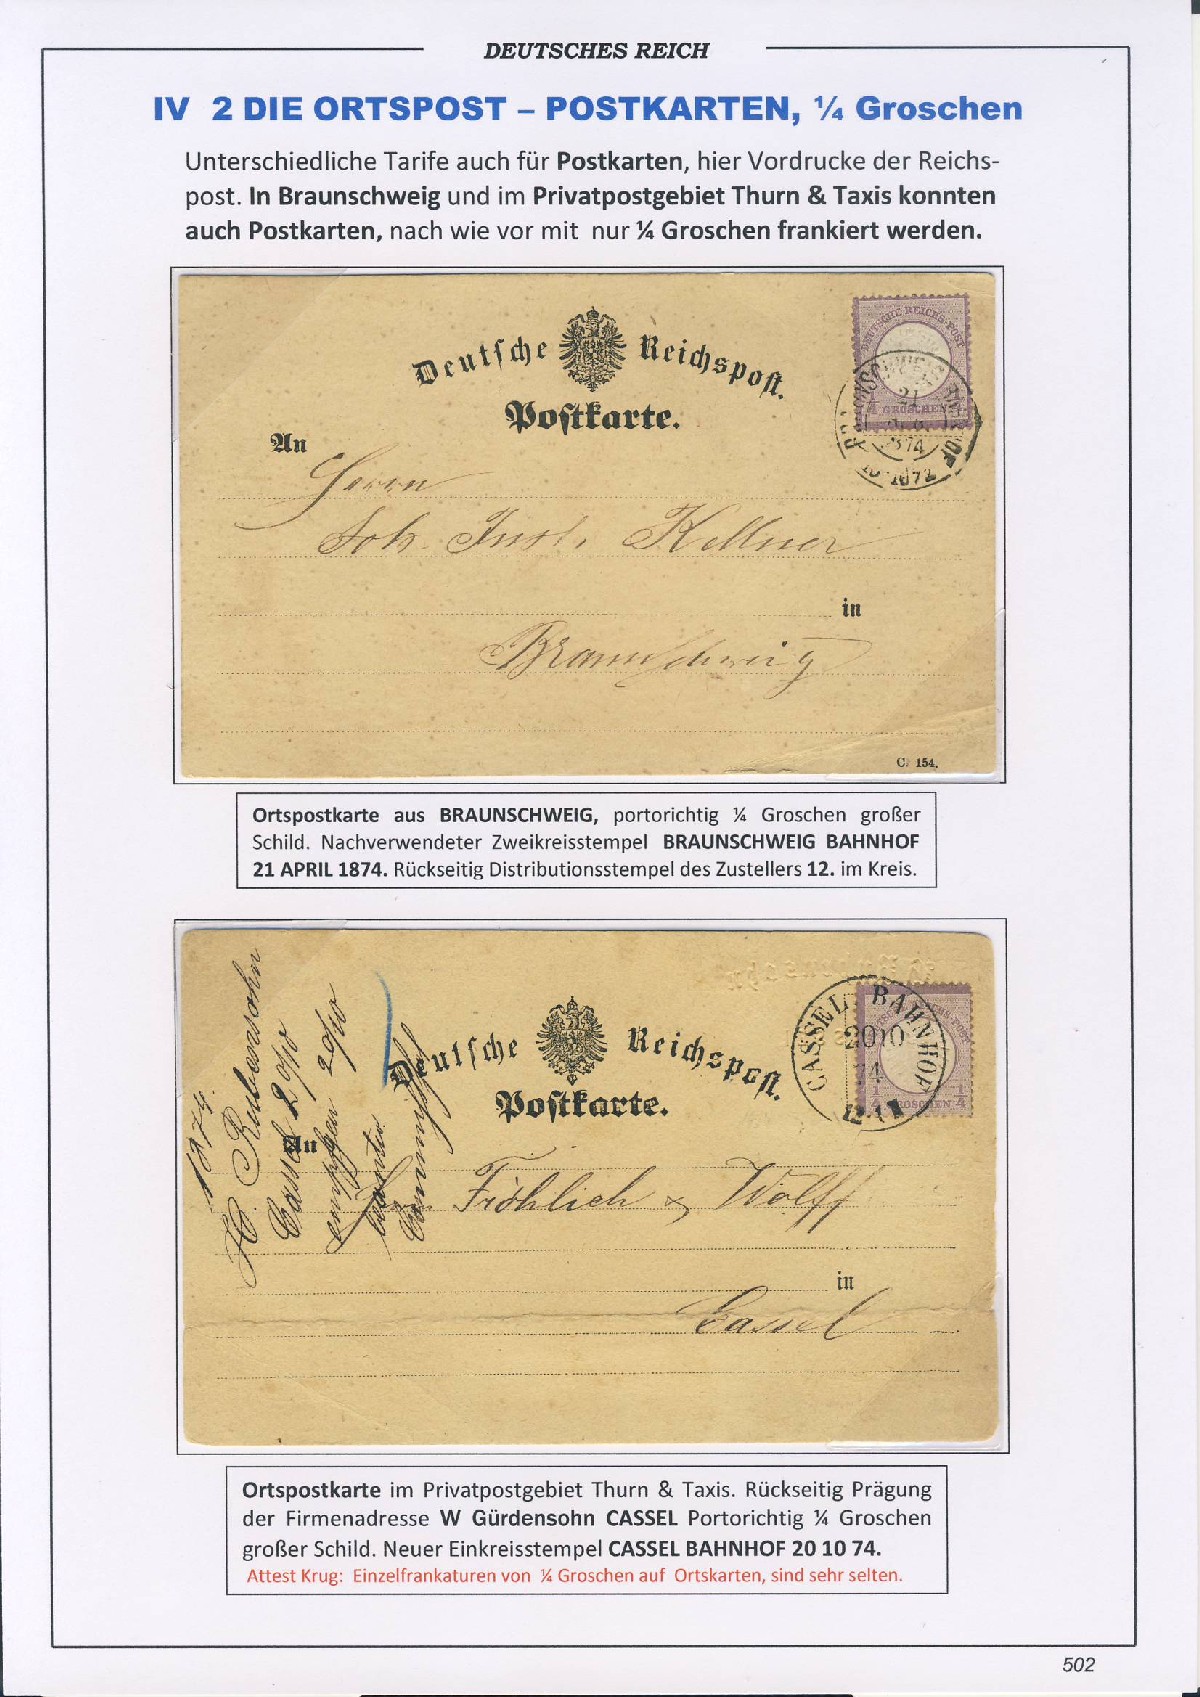 DEUTSCHES REICH
IV 2 DIE ORTSPOST – POSTKARTEN, ¼ Groschen
Unterschiedliche Tarife auch für Postkarten, hier Vordrucke der Reichs-
post. In Braunschweig und im Privatpostgebiet Thurn & Taxis konnten
auch Postkarten, nach wie vor mit nur ¼ Groschen frankiert werden.
Deutsche Reichspost.
Postkarte.
DEUTSCHE REICHS-POST
¼ GROSCHEN
21
1874
An
Herrn
Joh. Just. Kellner
in
Braunschweig
C. 154.
Ortspostkarte aus BRAUNSCHWEIG, portorichtig ¼ Groschen großer
Schild. Nachverwendeter Zweikreisstempel BRAUNSCHWEIG BAHNHOF
21 APRIL 1874. Rückseitig Distributionsstempel des Zustellers 12. im Kreis.
1874.
H. Rubensohn
Cassel 20/10
empfgen 20/10
Deutsche Reichspost.
Postkarte.
CASSEL BAHNHOF
20 10
74
¼ GROSCHEN ¼
An
Fröhlich & Wolff
in
Cassel
Ortspostkarte im Privatpostgebiet Thurn & Taxis. Rückseitig Prägung
der Firmenadresse W Gürdensohn CASSEL Portorichtig ¼ Groschen
großer Schild. Neuer Einkreisstempel CASSEL BAHNHOF 20 10 74.
Attest Krug: Einzelfrankaturen von ¼ Groschen auf Ortskarten, sind sehr selten.
502